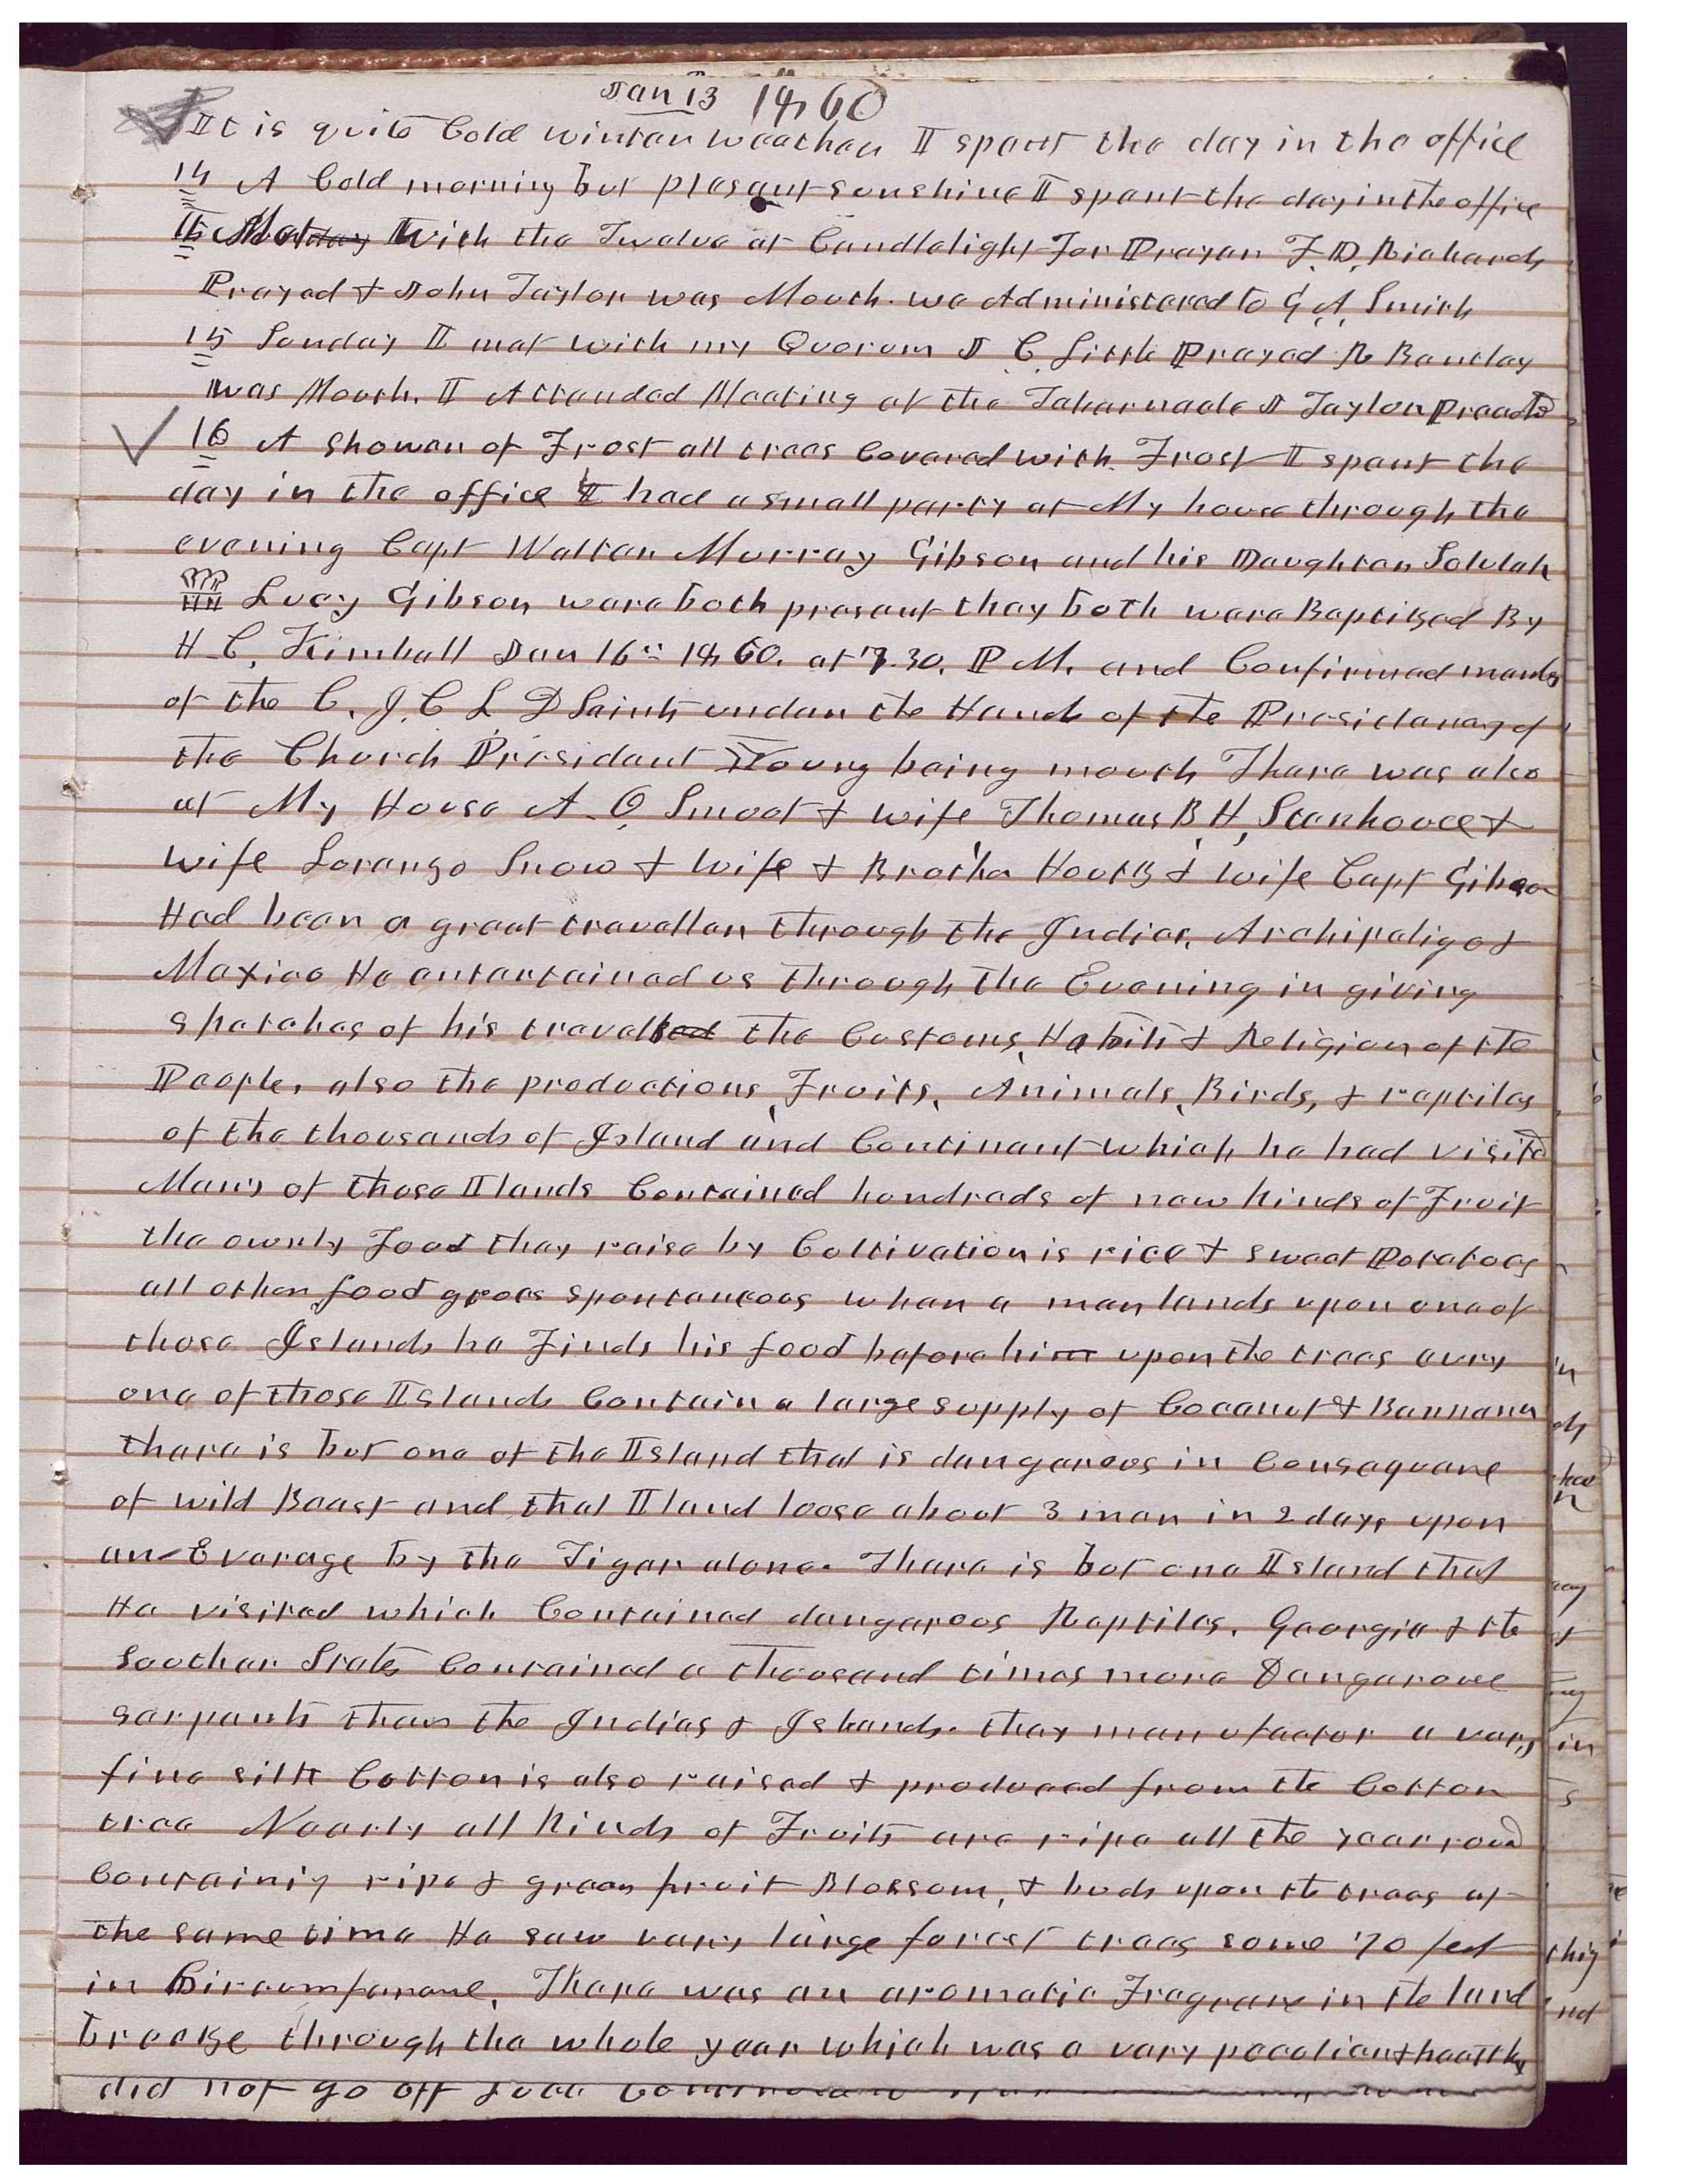 Jan 13 1860
It is quite Cold winter weather I spent the day in the office
14 A Cold morning but plesant sunshine I spent the day in the office
Met with the Twelve at Candlelight for Prayer F. D. Richards
Prayed & John Taylor was Mouth. we Administered to G. A. Smith
15 Sunday I met with my Quorum J C. Little Prayed R Bentley
was Mouth. I Attended Meeting at the Tabernacle J Taylor preachd
16 A Shower of Frost all trees Covered with Frost I spent the
day in the office I had a small party at My house through the
evening Capt Walter Murray Gibson and his Daughter Talulah
Lucy Gibson were both present they both were Baptized By
H. C. Kimball Jan 16th 1860. at 7.30. P M. and Confirmed membs
of the C. J. C L D Saints under the Hands of the Presidency of
the Church President Young being mouth There was also
at My House A. O Smoot & wife Thomas B. H. Stenhouse &
wife Lorenzo Snow & wife & Brother Houtz & wife Capt Gibson
Had been a great traveller through the Indies, Archipeligo &
Mexico He entertained us through the Evening in giving
sketches of his travels the Customs, Habits & Religion of the
People, also the productions, Fruits, Animals, Birds, & reptiles
of the thousands of Island and Continent which he had visitd
Many of those Ilands Contained hundreds of new kinds of Fruit
the ownly Food they raise by Cultivation is rice & sweet Potatoes
all other food groes spontaneous when a man lands upon one of
those Islands he Finds his food before him upon the trees evry
one of those Islands Contain a large supply of Cocanut & Bannana
there is but one of the Island that is dangerous in Consequence
of wild Beast and that Iland loose about 3 men in 2 days upon
an Everage by the Tiger alone. There is but one Island that
He visited which Contained dangerous Reptiles. Georgia & the
Souther States Contained a thousand times more Dangerous
serpents than the Indies & Islands. they manufactor a very
fine silk Cotton is also raised & produced from the Cotton
tree Nearly all kinds of Fruits are ripe all the year round
Containig ripe & green fruit Blossom, & buds upon the trees at
the same time He saw very large forest trees some 70 feet
in Circumference. There was an aromatic Fragrance in the land
breeze through the whole year which was a very peculiar & healthy
did not go off